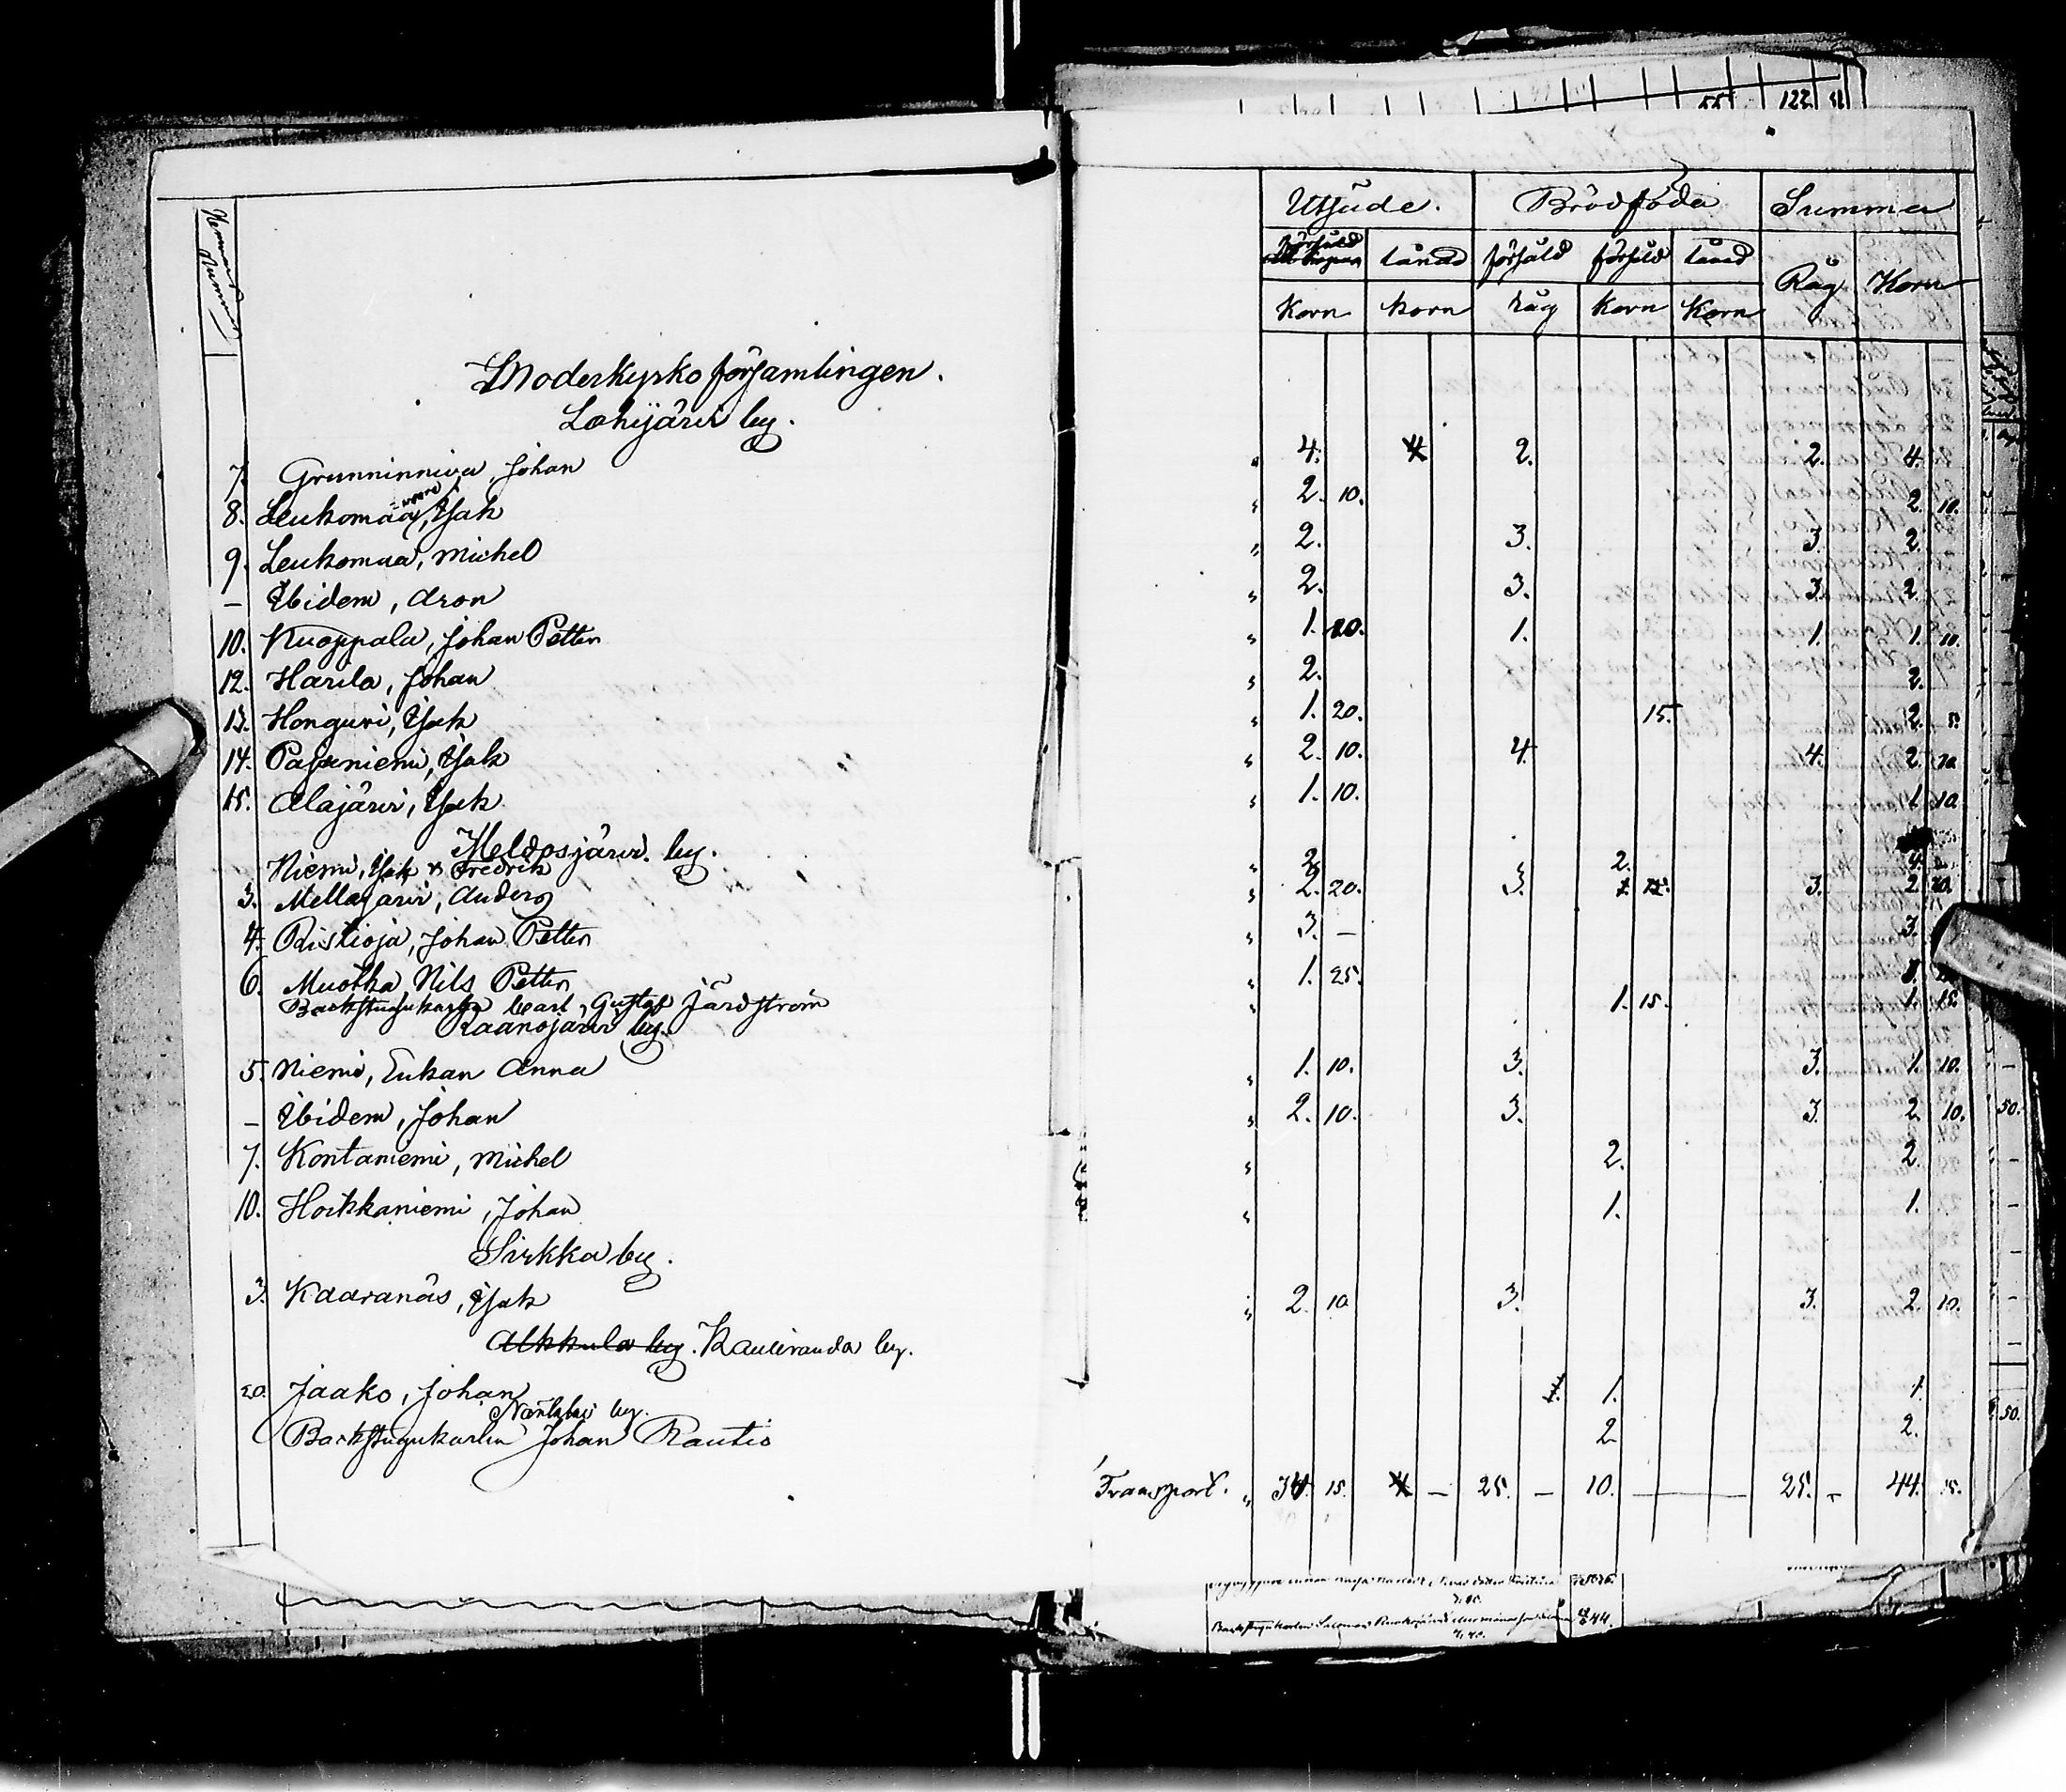 55 122
Hemmans Nummer
Utsäde. Brödföda Summa
försåld lånad försåld försåld lånad Råg Korn
Korn Korn Råg Korn Korn
Moderkyrko församlingen.
Lohijärvi by.
7. Grunninniva, Johan „ 4. 4 2. 2. 4.
8. Leukomaa, Isak „ 2. 10. 2. 10.
9. Leukomaa, Michel „ 2. 3. 3. 2.
– Ibidem, Aron „ 2. 3. 3. 2.
10. Kuoppala, Johan Petter „ 1. 20. 1. 1. 1. 10.
12. Harila, Johan „ 2. 2.
13. Honguri, Isak „ 1. 20. 15. 2. 5.
14. Pajaniemi, Isak „ 2. 10. 4. 4. 2. 10
15. Alajärvi, Isak „ 1. 10. 1. 10.
Meldosjärvi by.
Niemi, Isak & Fredrik „ 2 2. 4.
3. Mellajärvi, Anders „ 2. 20. 3. 3. 2. 20.
4. Ristioja, Johan Petter „ 3. – 3.
6. Muotka, Nils Petter „ 1. 25.
Backstugukarlen Carl Gustaf Järdström „ 1. 15. 1. 15.
Raanojärvi by.
5. Niemi, Enkan Anna „ 1. 10. 3. 3. 1. 10.
– Ibidem, Johan „ 2. 10. 3. 3. 2. 10.
7. Kontaniemi, Michel „ 2. 2.
10. Hoikkaniemi, Johan „ 1. 1.
Sirkka by.
3. Kaaranäs, Isak „ 2. 10 3. 3. 2. 10.
Alkkula by. Kauliranda by.
20. Jaako, Johan 1. 1
by.
Backstugukarlen Johan Rautio 2 2.
Transport. „ 34. 15. 4 – 25. – 10. – 25. – 44. 15.
Backstugukarlen Salomon 44.